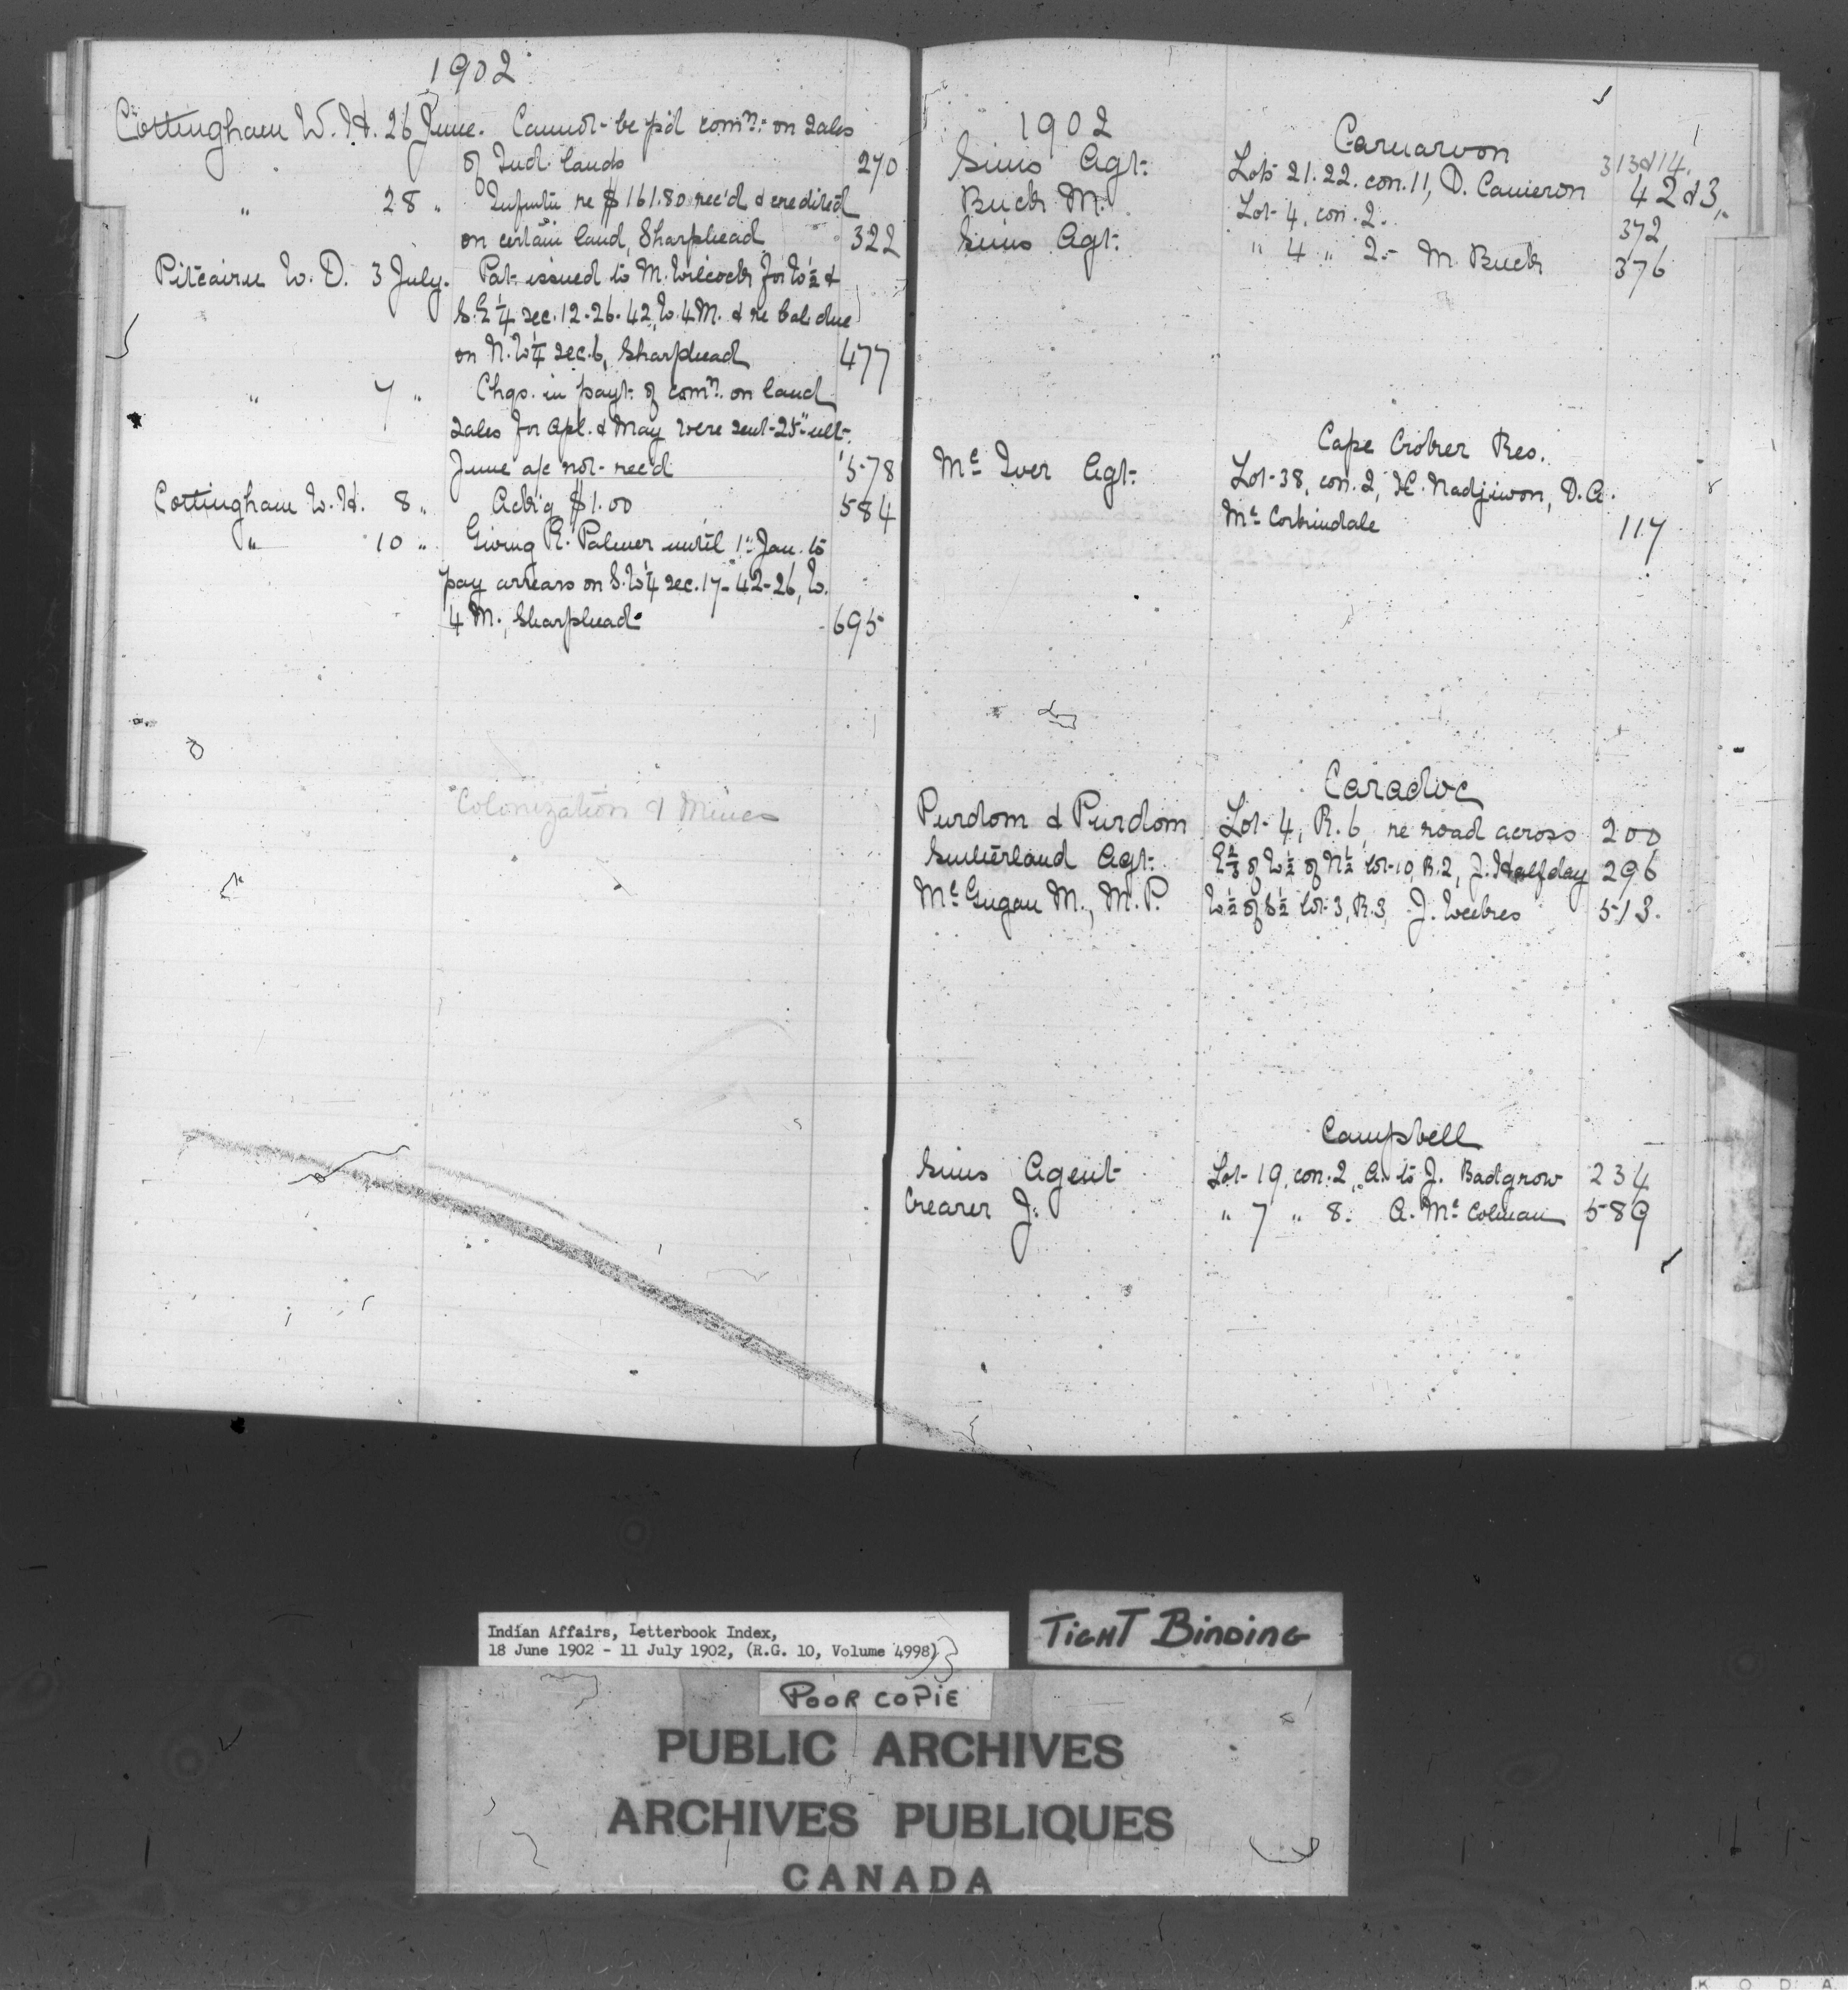 1902
Cottingham W. H. 26 June. Cannot be p'd comn. on sales
of Ind. lands 270
" 28 " Informtn re $161.80 rec'd & credited
on certain land, Sharphead 322
Pitcairn W. D. 3 July. Pat. issued to M. Wilcock for W ½ &
S. E ¼ sec. 12-26-42, W. 4 M. & re bal. due
on N. W ¼ sec. 6, Sharphead 477
" 7 " Chqs. in payt. of comn. on land
sales for Apl. & May were sent 25" ult.
June a/c not rec'd 578
Cottingham W. H. 8 " Ack'g $1.00 584
" 10 " Giving R. Palmer until 1" Jan. to
pay arrears on S. W ¼ sec. 17-42-26, W.
4 M., Sharphead 695
Colonization & Mines
1902
Carnarvon
Sims Agt. Lots 21. 22. con. 11, D. Cameron 313&14. 42&3,
Buck M. Lot 4, con. 2. 372
Sims Agt. " 4 " 2. M. Buck 376
Cape Croker Res.
Mc Iver Agt. Lot 38, con. 2, H. Nadjiwon, D. A.
Mc Corkindale 117
Caradoc
Purdom & Purdom Lot 4, R. 6, re road across 200
Sutherland Agt. E ⅔ of W ½ of N ½ lot 10, R. 2, J. Halfday 296
Mc Gugan M., M. P. W ½ of S ½ lot 3, R. 3, J. 513.
Campbell
Sims Agent Lot 19, con. 2, A. to J. Badgrow 234
Crearer J. " 7 " 8. A. Mc Colman 589
Indian Affairs, Letterbook Index,
18 June 1902 - 11 July 1902, (R.G. 10, Volume 4998)
TIGHT BINDING
POOR COPIE
PUBLIC ARCHIVES
ARCHIVES PUBLIQUES
CANADA
K O D A